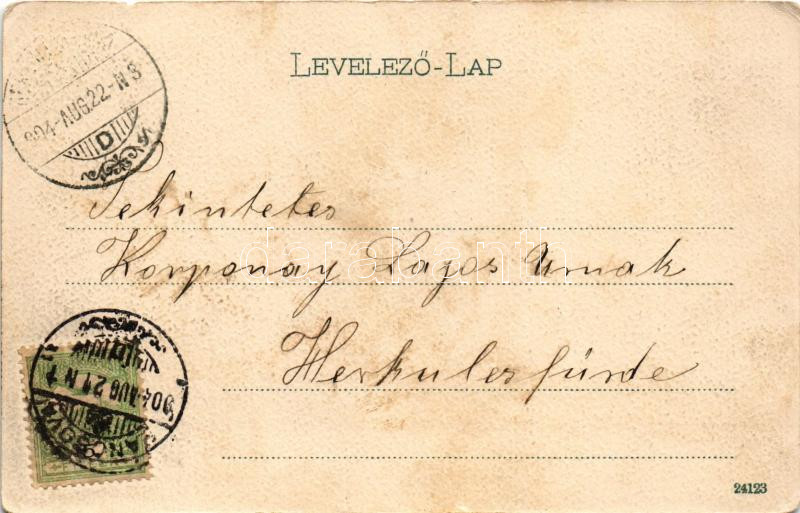 LEVELEZŐ-LAP
904-AUG.22-N8
D
Tekintetes
Korponay Lajos Urnak
Herkulesfürdő
904-AUG.21.N
darabanth
24123